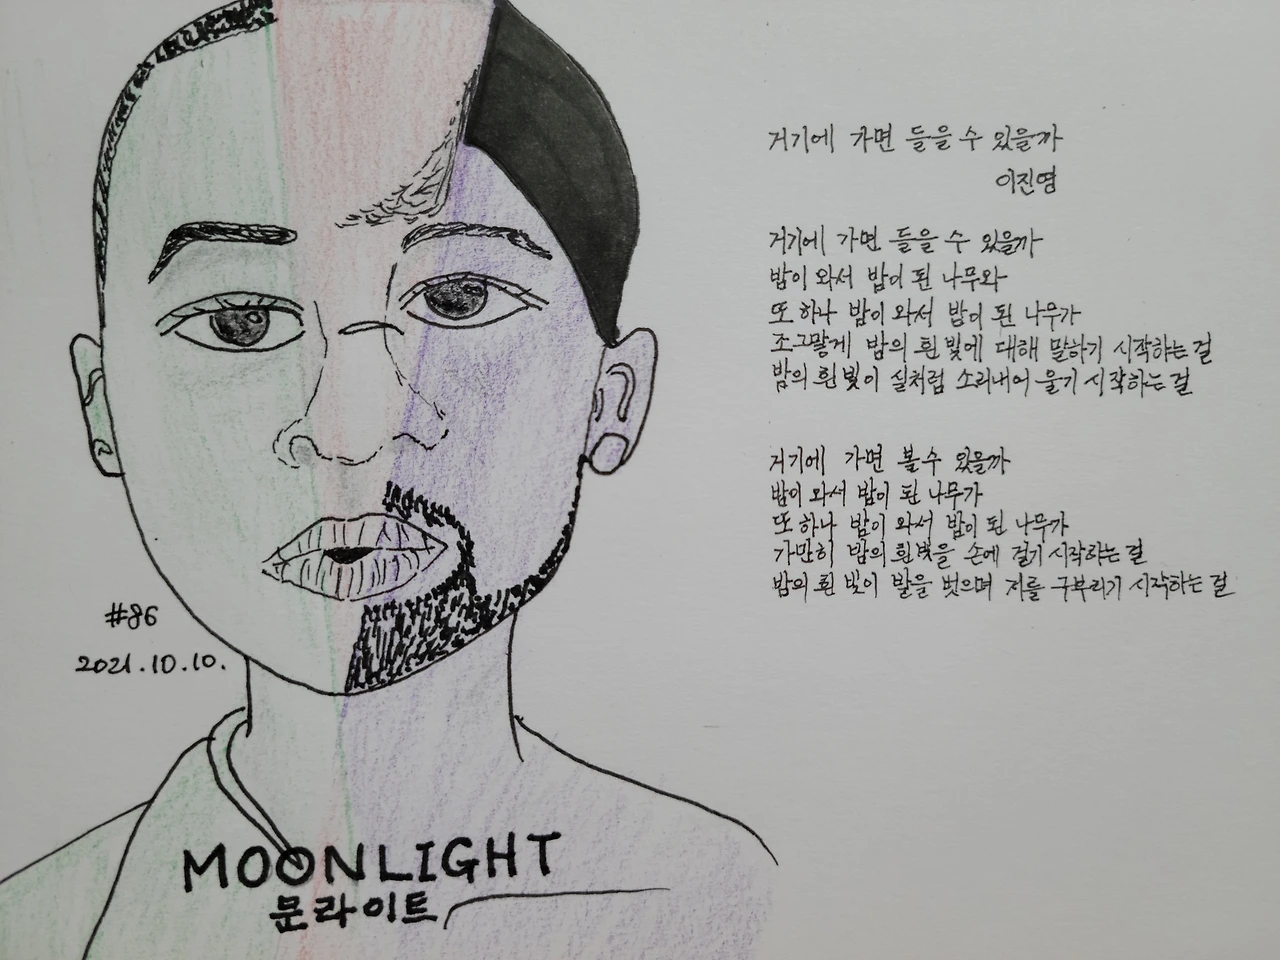 거기에 가면 들을 수 있을까
이진명
거기에 가면 들을 수 있을까
밤이 와서 밤이 된 나무와
또 하나 밤이 와서 밤이 된 나무가
조그맣게 밤의 흰 빛에 대해 말하기 시작하는 걸
밤의 흰 빛이 실처럼 소리내어 울기 시작하는 걸
거기에 가면 볼 수 있을까
밤이 와서 밤이 된 나무가
또 하나 밤이 와서 밤이 된 나무가
가만히 밤의 흰 빛을 손에 걸기 시작하는 걸
밤의 흰 빛이 발을 벗으며 저를 구부리기 시작하는 걸
#86
2021.10.10.
MOONLIGHT
문라이트